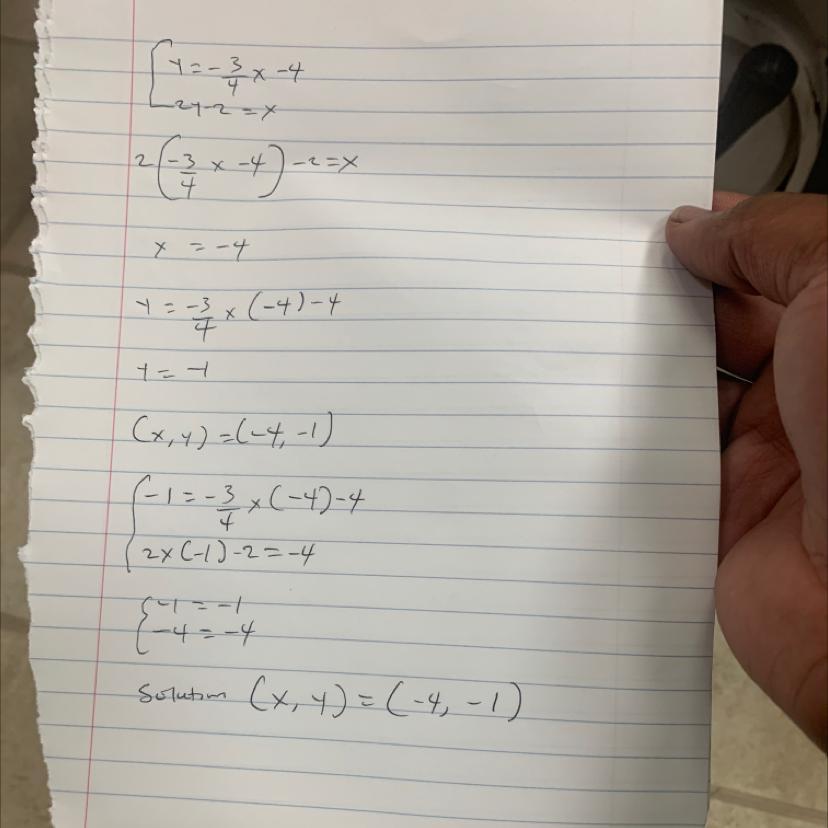 y = -3/4 x - 4
2y - 2 = x
2(-3/4 x - 4) - 2 = x
x = -4
y = -3/4 × (-4) - 4
y = -1
(x, y) = (-4, -1)
-1 = -3/4 × (-4) - 4
2 × (-1) - 2 = -4
-1 = -1
-4 = -4
Solution (x, y) = (-4, -1)